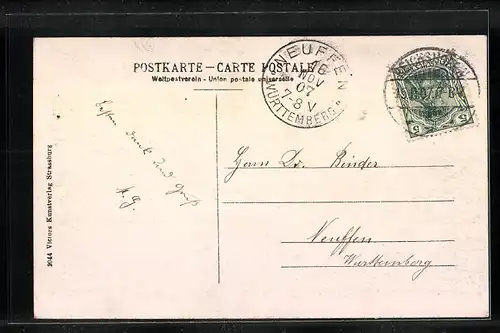 POSTKARTE – CARTE POSTALE
Weltpostverein - Union postale universelle
NEUFFEN
16
NOV
07
7-8 V
WÜRTTEMBERG
5 5
Besten Dank und Gruß
A. G.
Herrn Dr. Binder
Neuffen
Württemberg
2044 Victors Kunstverlag Strassburg